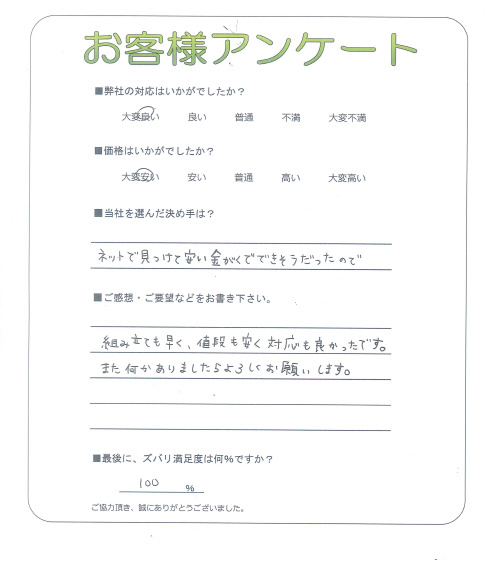 お客様アンケート
■弊社の対応はいかがでしたか？
大変良い 良い 普通 不満 大変不満
■価格はいかがでしたか？
大変安い 安い 普通 高い 大変高い
■当社を選んだ決め手は？
ネットで見つけて安い金がくでできそうだったので
■ご感想・ご要望などをお書き下さい。
組み立ても早く、値段も安く対応も良かったです。
また何かありましたらよろしくお願いします。
■最後に、ズバリ満足度は何%ですか？
100 %
ご協力頂き、誠にありがとうございました。